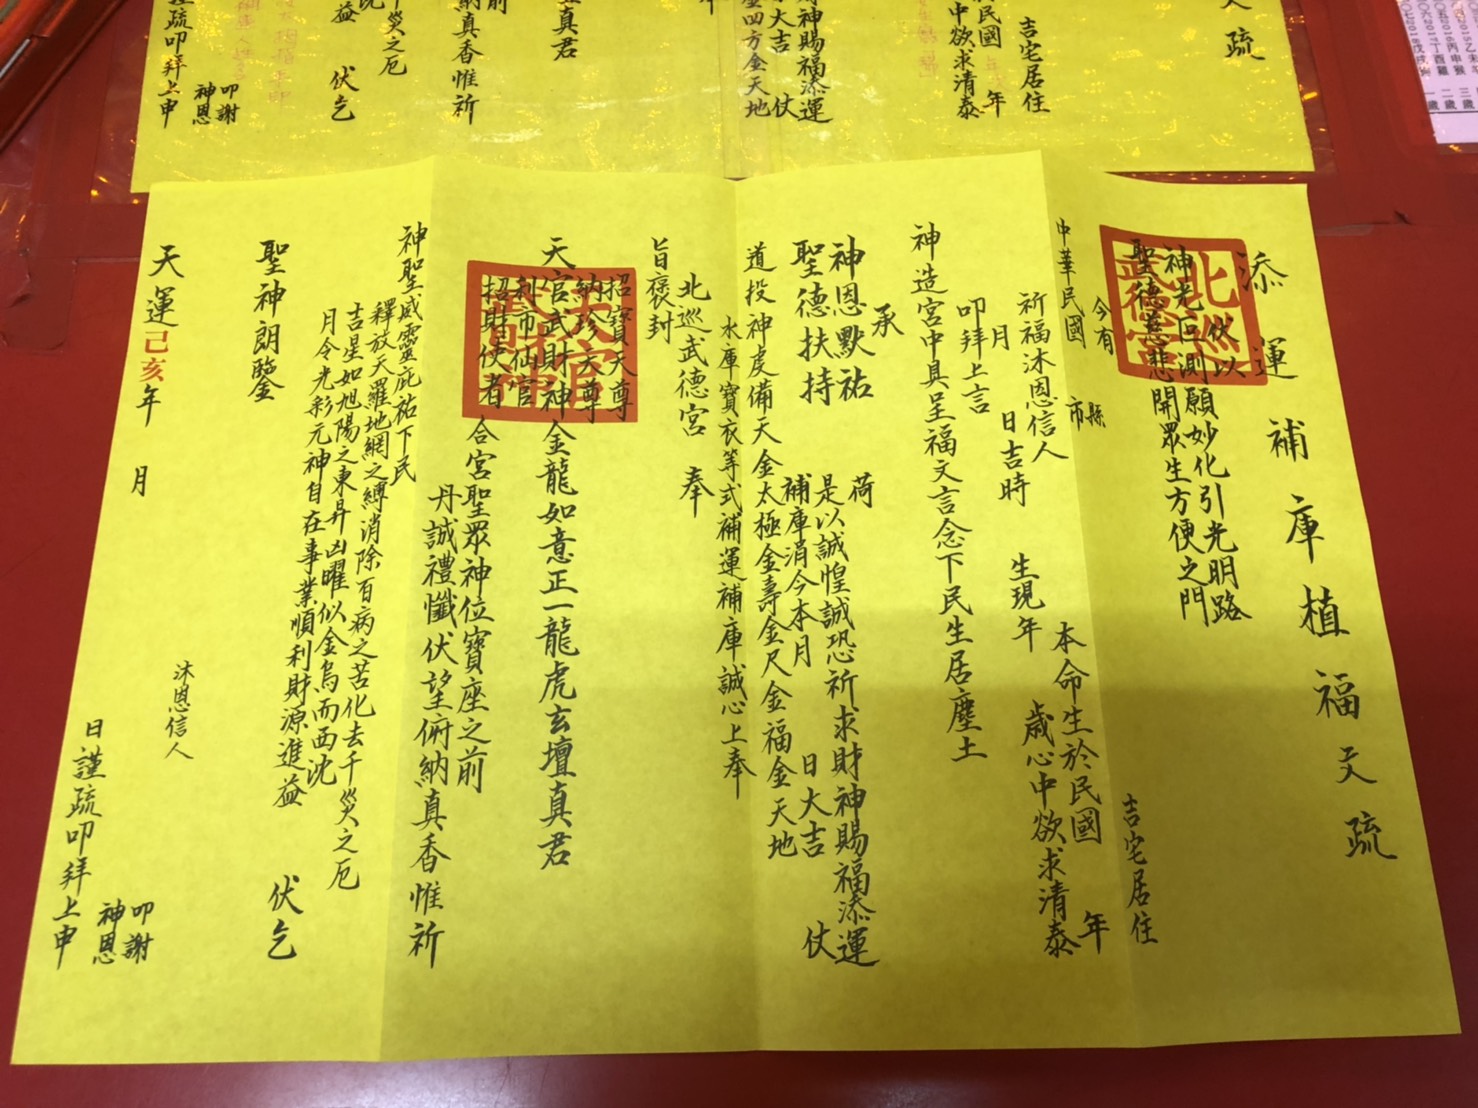 添運補庫植福文疏
伏以
神光叵測願妙化引光明路
聖德慈悲開眾生方便之門
北巡
武德宮
今有
中華民國
縣
市
吉宅居住
祈福沐恩信人
本命生於民國 年
月 日吉時 生現年 歲心中欲求清泰
叩拜上言
神造宮中具呈福文言念下民生居塵土
承
神恩默祐
聖德扶持
荷
是以誠惶誠恐祈求財神賜福添運
補庫涓今本月 日大吉 仗
道投神虔備天金太極金壽金尺金福金天地
水庫寶衣等式補運補庫誠心上奉
北巡武德宮 奉
旨褒封
招寶天尊
納珍天尊
天官武財神金龍如意正一龍虎玄壇真君
利市仙官
招財使者
天官
武財神
合宮聖眾神位寶座之前
丹誠禮懺伏望俯納真香惟祈
神聖威靈庇祐下民
釋放天羅地網之縛消除百病之苦化去千災之厄
吉星如旭陽之東昇凶曜似金烏而西沈
月令光彩元神自在事業順利財源進益 伏乞
聖神朗鑒
沐恩信人
叩謝
神恩
天運己亥年 月 日謹疏叩拜上申
文疏
吉宅居住
民國 年
中欲求清泰
財神賜福添運
大吉 仗
四方金天地
奉
真君
前
納真香惟祈
千災之厄
沈
益 伏乞
叩謝
神恩
謹疏叩拜上申